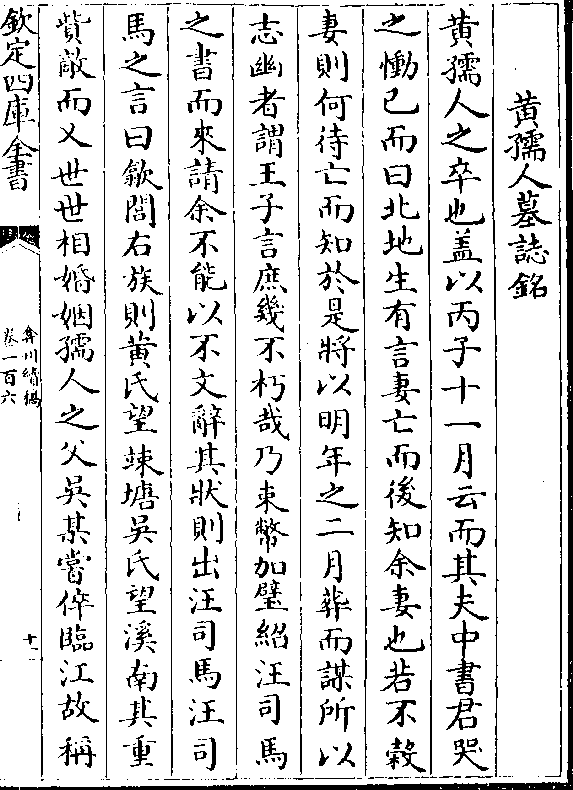 黄孺人墓誌銘
黄孺人之卒也盖以丙子十一月云而其夫中書君哭
之慟已而曰北地生有言妻亡而後知余妻也若不穀
妻則何待亡而知於是將以明年之二月葬而謀所以
志幽者謂王子言庶幾不朽哉乃束幣加璧紹汪司馬
之書而來請余不能以不文辭其狀則出汪司馬汪司
馬之言曰歙閭右族則黄氏望竦塘吳氏望溪南其重
貲敵而又世世相婚姻孺人之父吳某嘗倅臨江故稱
欽定四庫全書
弇州續稿
卷一百六
十一